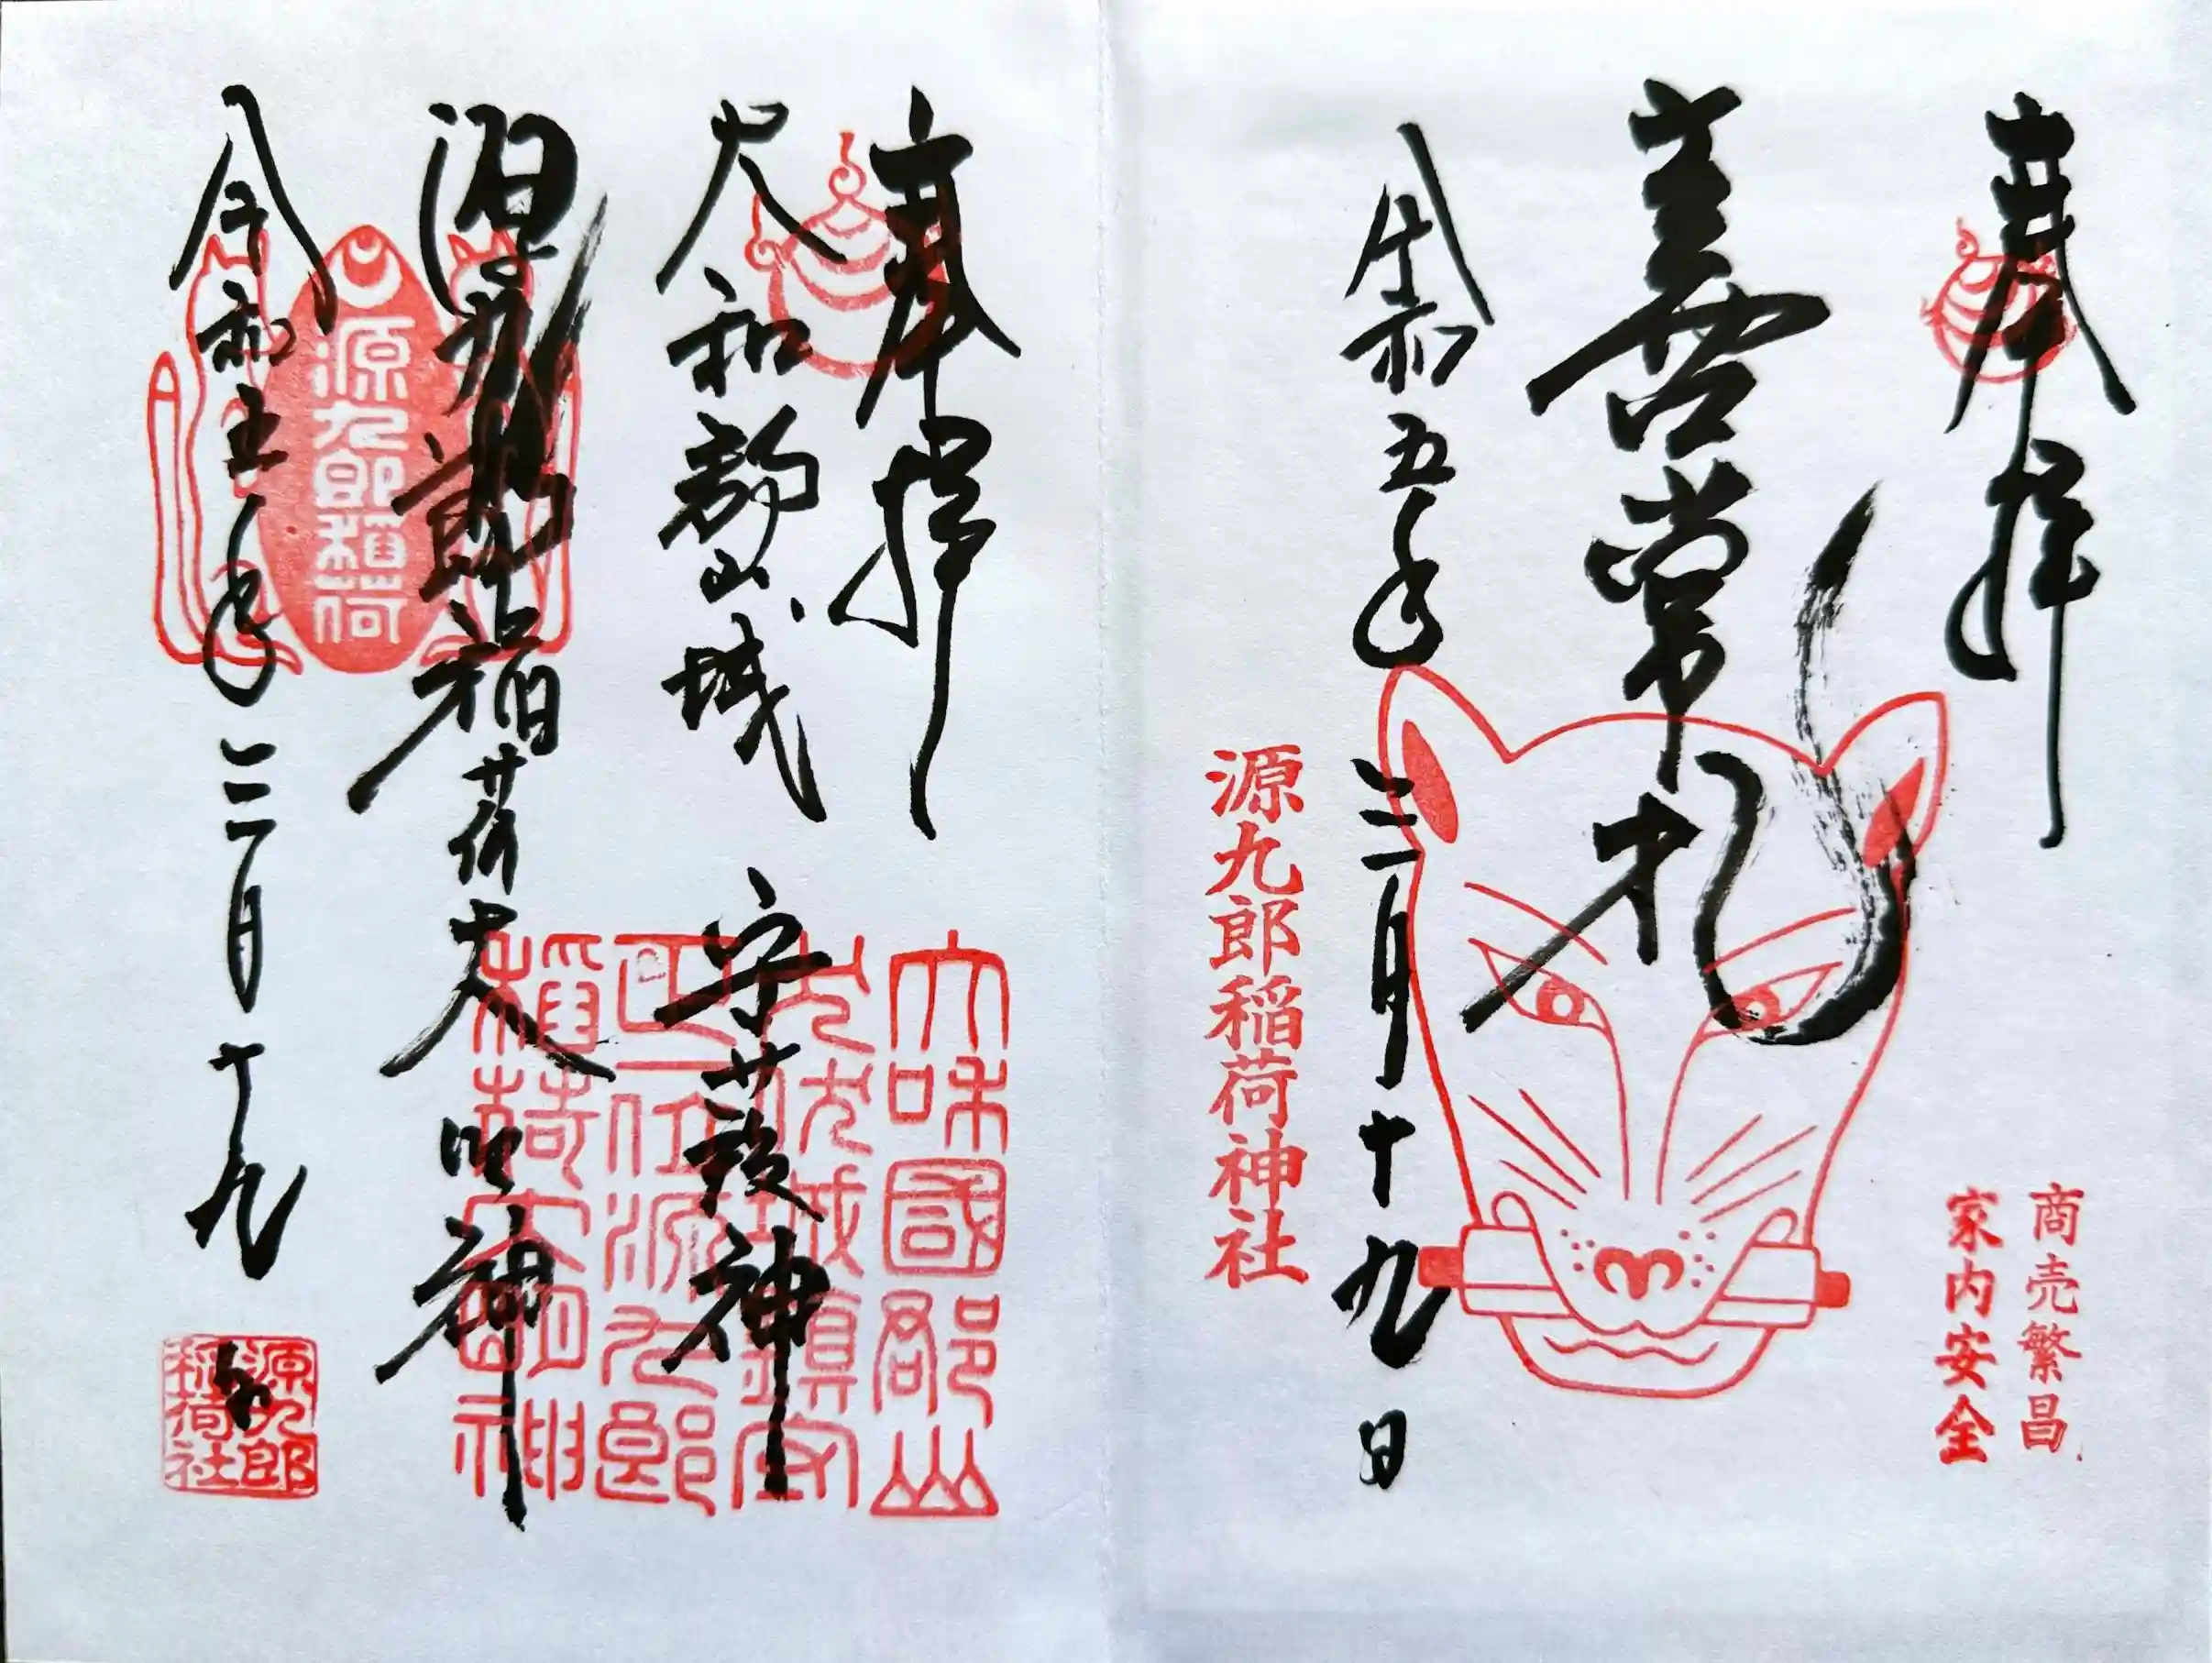 奉拝
商売繁昌
家内安全
善常礼
令和五年三月十九日
源九郎稲荷神社
奉拝
大和郡山城
守護神
源九郎稲荷大明神
令和五年三月十九日
源九郎稲荷
大和國郡山
正一位源九郎
稲荷大明神
源九郎
稲荷社